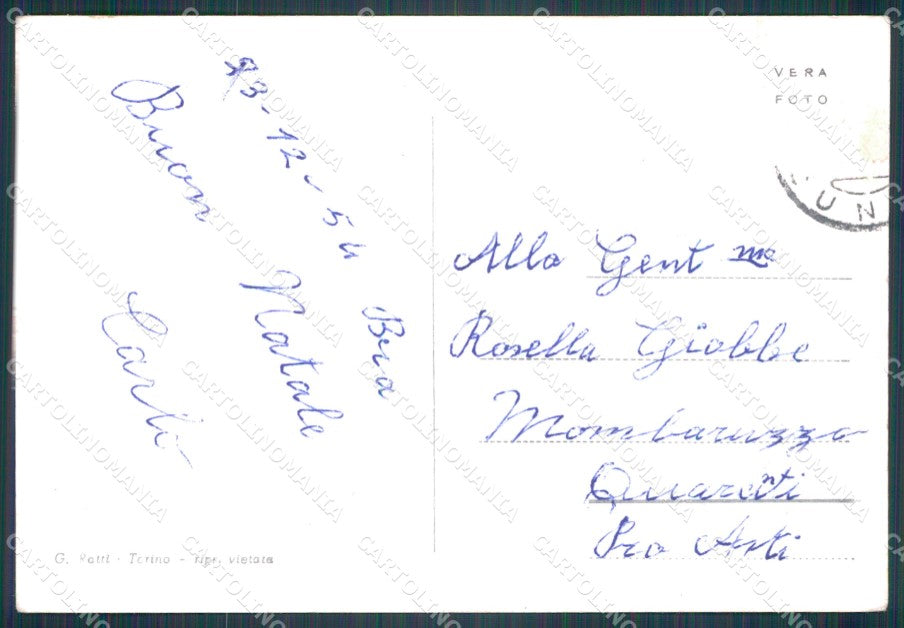 23-12-54 Bra
Buon Natale
Carlo
VERA
FOTO
UN
Alla Gent ma
Rosella Giobbe
Mombaruzzo
Quaranti
Pro Asti
G. Ratti - Torino - ripr. vietata
CARTOLINOMANIA